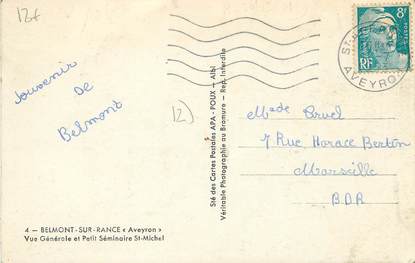 12f
Souvenir
De
Belmont
12)
8F
POSTES
RF
AVEYRON
Sté des Cartes Postales APA - POUX - Albi
Véritable Photographie au Bromure - Rep. Interdite
Made Bruel
7 Rue Horace Bertin
Marseille
B D R
4 — BELMONT-SUR-RANCE « Aveyron »
Vue Générale et Petit Séminaire St-Michel